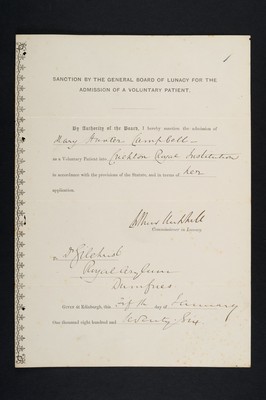 1
SANCTION BY THE GENERAL BOARD OF LUNACY FOR THE
ADMISSION OF A VOLUNTARY PATIENT.
By Authority of the Board, I hereby sanction the admission of
Mary Hunter Campbell
as a Voluntary Patient into Crichton Royal Institution
in accordance with the provisions of the Statute, and in terms of her
application.
Commissioner in Lunacy
Dr Gilchrist
Royal Asylum
Dumfries
Given at Edinburgh, this day of January
One thousand eight hundred and Seventy-Six